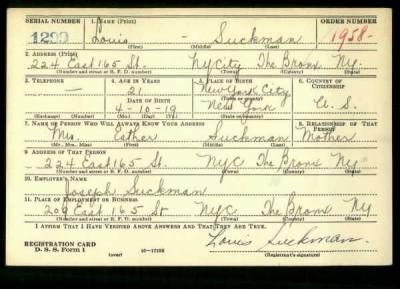 SERIAL NUMBER 1. NAME (Print) ORDER NUMBER
1299 Louis - Suckman 1958-
(First) (Middle) (Last)
2. ADDRESS (Print)
224 East 165 St. NYCity The Bronx NY.
(Number and street or R. F. D. number) (Town) (County) (State)
3. TELEPHONE 4. AGE IN YEARS 5. PLACE OF BIRTH 6. COUNTRY OF CITIZENSHIP
— 21 New York City
DATE OF BIRTH (Town or county)
4-10-19 New York U. S.
(Exchange) (Number) (Mo.) (Day) (Yr.) (State or country)
7. NAME OF PERSON WHO WILL ALWAYS KNOW YOUR ADDRESS 8. RELATIONSHIP OF THAT PERSON
Mrs. Esther Suckman Mother
(Mr., Mrs., Miss) (First) (Middle) (Last)
9. ADDRESS OF THAT PERSON
224 East 165 St. NYC The Bronx NY
(Number and street or R. F. D. number) (Town) (County) (State)
10. EMPLOYER'S NAME
Joseph Suckman
11. PLACE OF EMPLOYMENT OR BUSINESS
209 East 165 St NYC The Bronx NY
(Number and street or R. F. D. number) (Town) (County) (State)
I AFFIRM THAT I HAVE VERIFIED ABOVE ANSWERS AND THAT THEY ARE TRUE.
REGISTRATION CARD Louis Suckman.
D. S. S. Form 1 (over) 16-17105 (Registrant's signature)